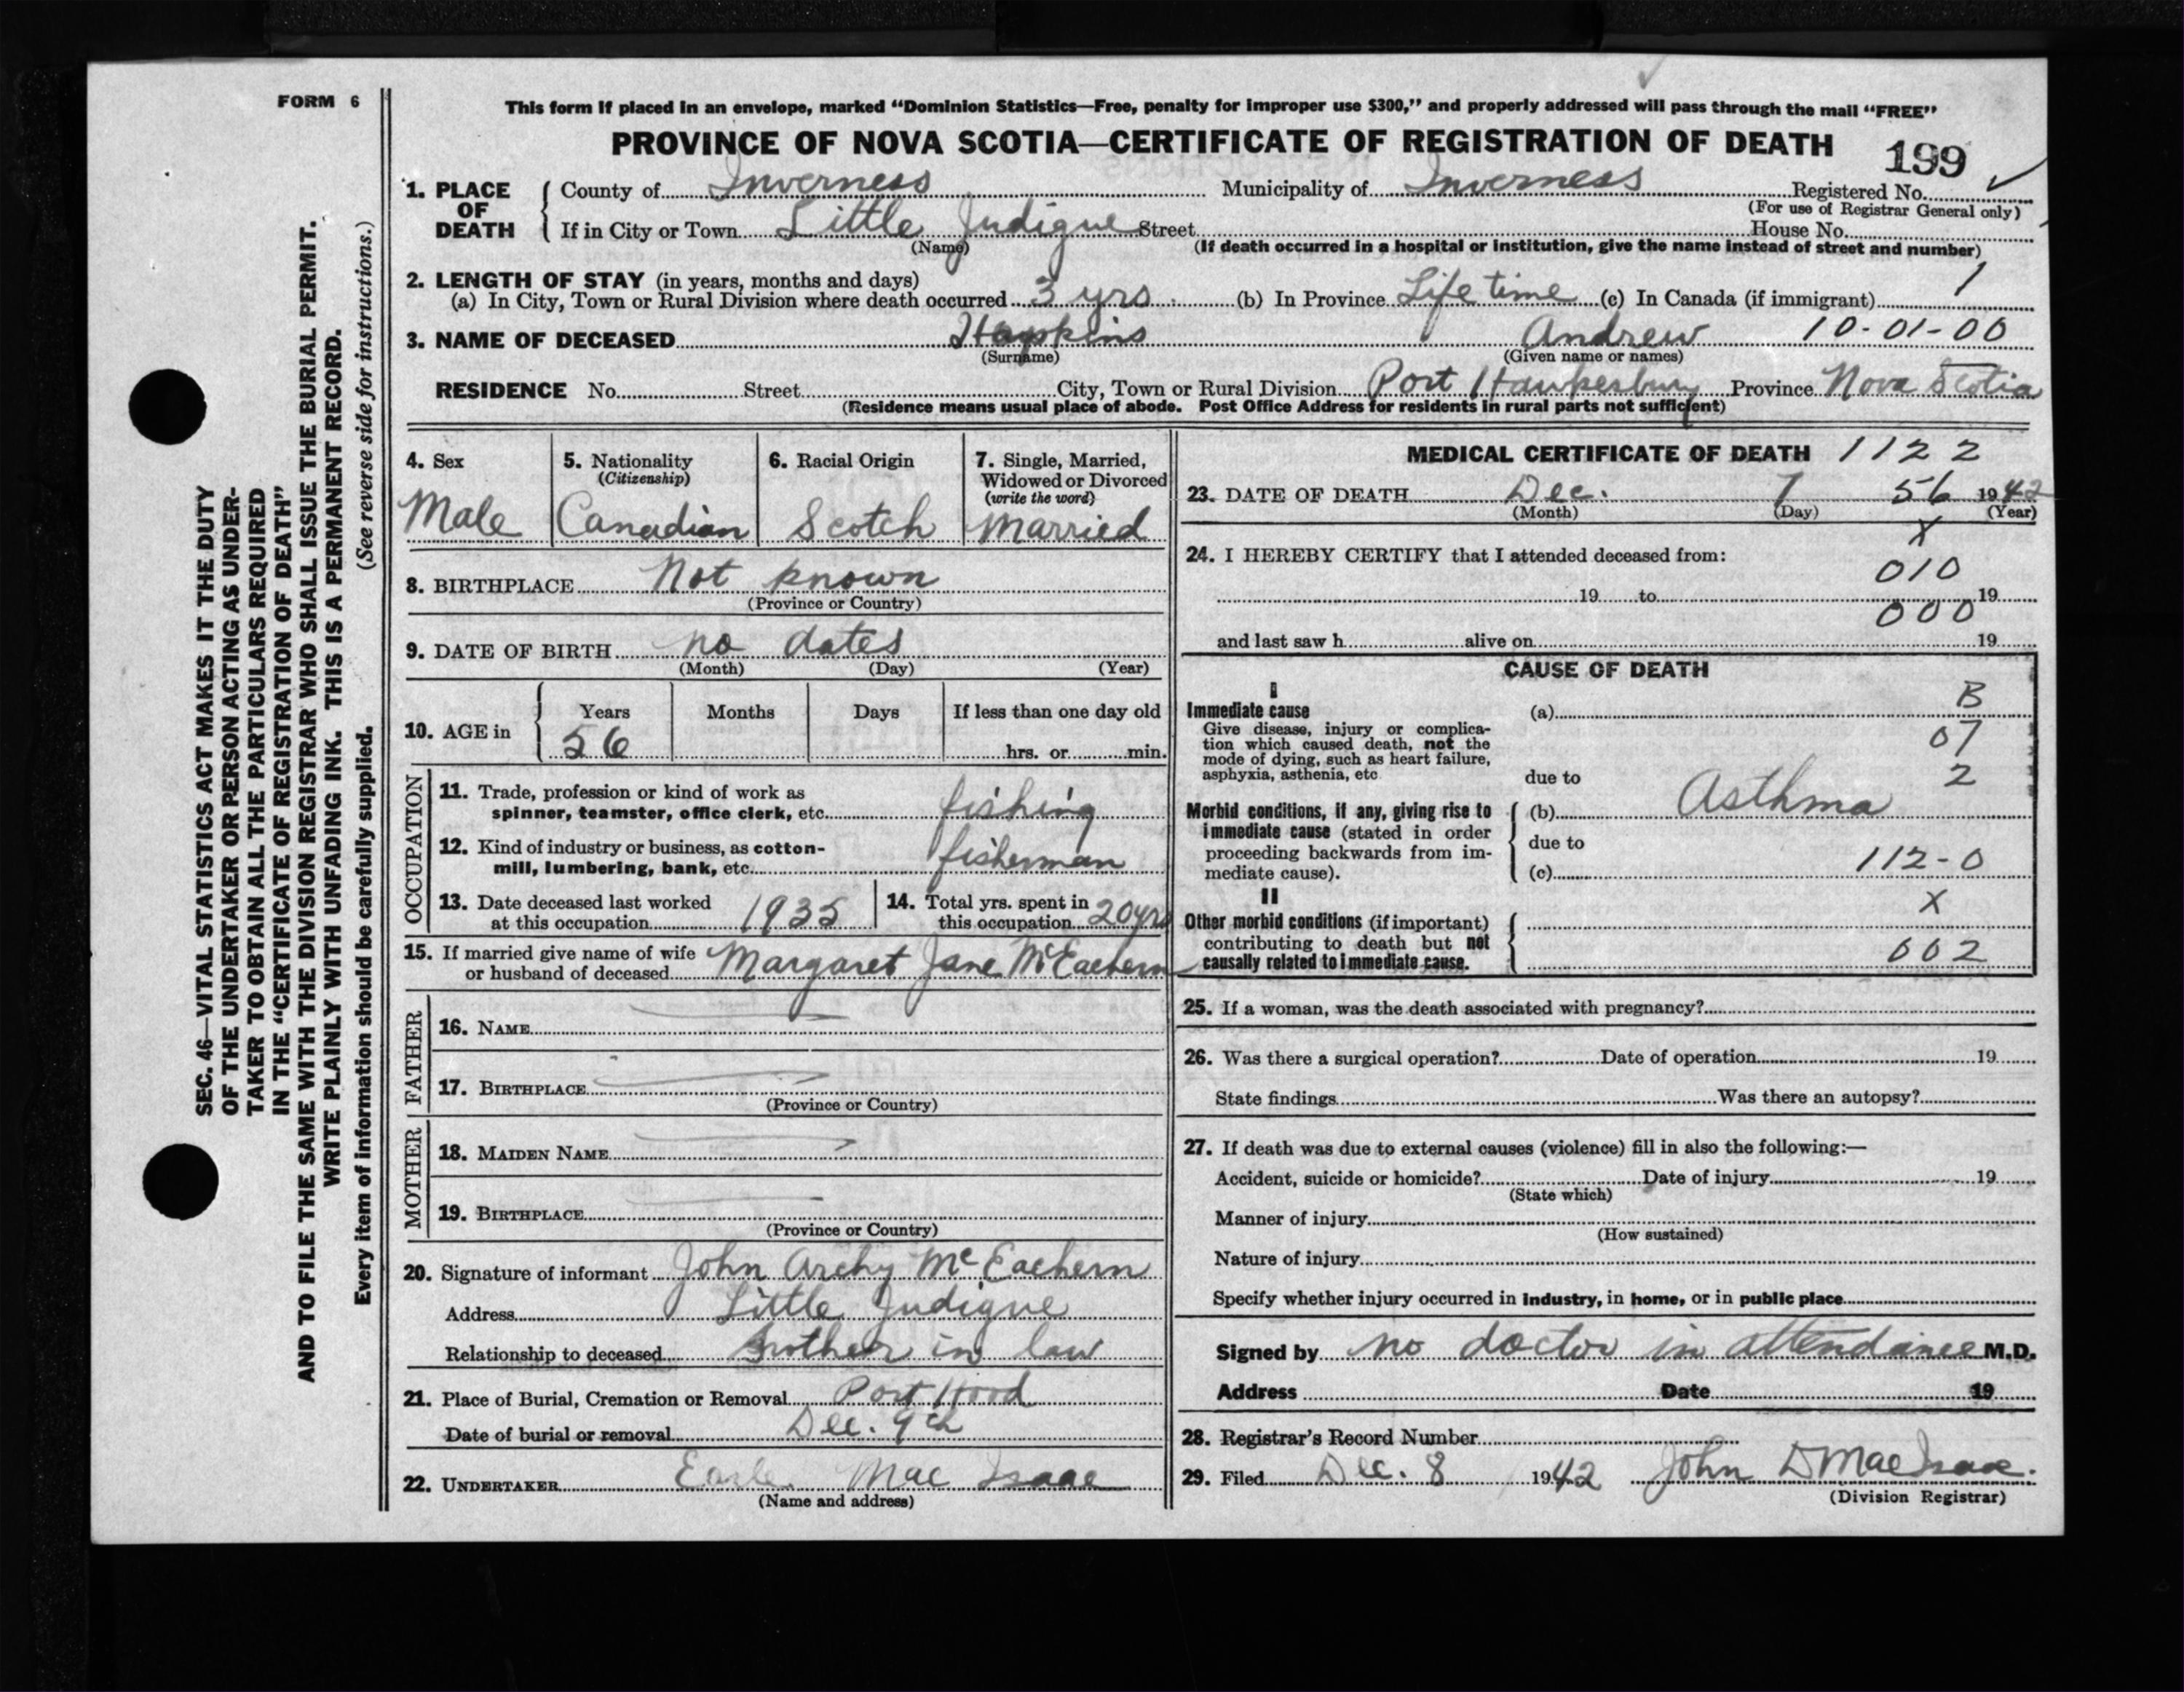 FORM 6
This form if placed in an envelope, marked “Dominion Statistics—Free, penalty for improper use $300,” and properly addressed will pass through the mail “FREE”
PROVINCE OF NOVA SCOTIA—CERTIFICATE OF REGISTRATION OF DEATH 199
1. PLACE OF DEATH
County of Inverness Municipality of Inverness Registered No.
(For use of Registrar General only)
If in City or Town Little Judique Street House No.
(Name) (If death occurred in a hospital or institution, give the name instead of street and number)
2. LENGTH OF STAY (in years, months and days)
(a) In City, Town or Rural Division where death occurred 3 yrs. (b) In Province Life time (c) In Canada (if immigrant) 1
3. NAME OF DECEASED Hopkins Andrew 10-01-00
(Surname) (Given name or names)
RESIDENCE No. Street City, Town or Rural Division Port Hawkesbury Province Nova Scotia
(Residence means usual place of abode. Post Office Address for residents in rural parts not sufficient)
4. Sex
Male
5. Nationality
(Citizenship)
Canadian
6. Racial Origin
Scotch
7. Single, Married,
Widowed or Divorced
(write the word)
Married
8. BIRTHPLACE Not known
(Province or Country)
9. DATE OF BIRTH no dates
(Month) (Day) (Year)
10. AGE in
Years Months Days If less than one day old
56 hrs. or min.
OCCUPATION
11. Trade, profession or kind of work as
spinner, teamster, office clerk, etc. fishing
12. Kind of industry or business, as cotton-
mill, lumbering, bank, etc. fisherman
13. Date deceased last worked
at this occupation 1935
14. Total yrs. spent in
this occupation 20 yrs
15. If married give name of wife
or husband of deceased Margaret Jane McEachern
FATHER
16. NAME
17. BIRTHPLACE
(Province or Country)
MOTHER
18. MAIDEN NAME
19. BIRTHPLACE
(Province or Country)
20. Signature of informant John Archy McEachern
Address Little Judique
Relationship to deceased Brother in law
21. Place of Burial, Cremation or Removal Port Hood
Date of burial or removal Dec. 9th
22. UNDERTAKER Earle Mac Isaac
(Name and address)
MEDICAL CERTIFICATE OF DEATH 1122
23. DATE OF DEATH Dec. 7 56 1942
(Month) (Day) (Year)
X
24. I HEREBY CERTIFY that I attended deceased from:
010
19 to 19
000
and last saw h alive on 19
CAUSE OF DEATH
I
Immediate cause (a) B
Give disease, injury or complica-
tion which caused death, not the 07
mode of dying, such as heart failure,
asphyxia, asthenia, etc. due to 2
Morbid conditions, if any, giving rise to (b) Asthma
immediate cause (stated in order
proceeding backwards from im- due to
mediate cause). (c) 112-0
II X
Other morbid conditions (if important)
contributing to death but not
causally related to immediate cause. 002
25. If a woman, was the death associated with pregnancy?
26. Was there a surgical operation? Date of operation 19
State findings Was there an autopsy?
27. If death was due to external causes (violence) fill in also the following:—
Accident, suicide or homicide? Date of injury 19
(State which)
Manner of injury
(How sustained)
Nature of injury
Specify whether injury occurred in industry, in home, or in public place
Signed by no doctor in attendance M.D.
Address Date 19
28. Registrar's Record Number
29. Filed Dec. 8 1942 John D MacIsaac.
(Division Registrar)
SEC. 46—VITAL STATISTICS ACT MAKES IT THE DUTY
OF THE UNDERTAKER OR PERSON ACTING AS UNDER-
TAKER TO OBTAIN ALL THE PARTICULARS REQUIRED
IN THE “CERTIFICATE OF REGISTRATION OF DEATH”
AND TO FILE THE SAME WITH THE DIVISION REGISTRAR WHO SHALL ISSUE THE BURIAL PERMIT.
WRITE PLAINLY WITH UNFADING INK. THIS IS A PERMANENT RECORD.
Every item of information should be carefully supplied. (See reverse side for instructions.)